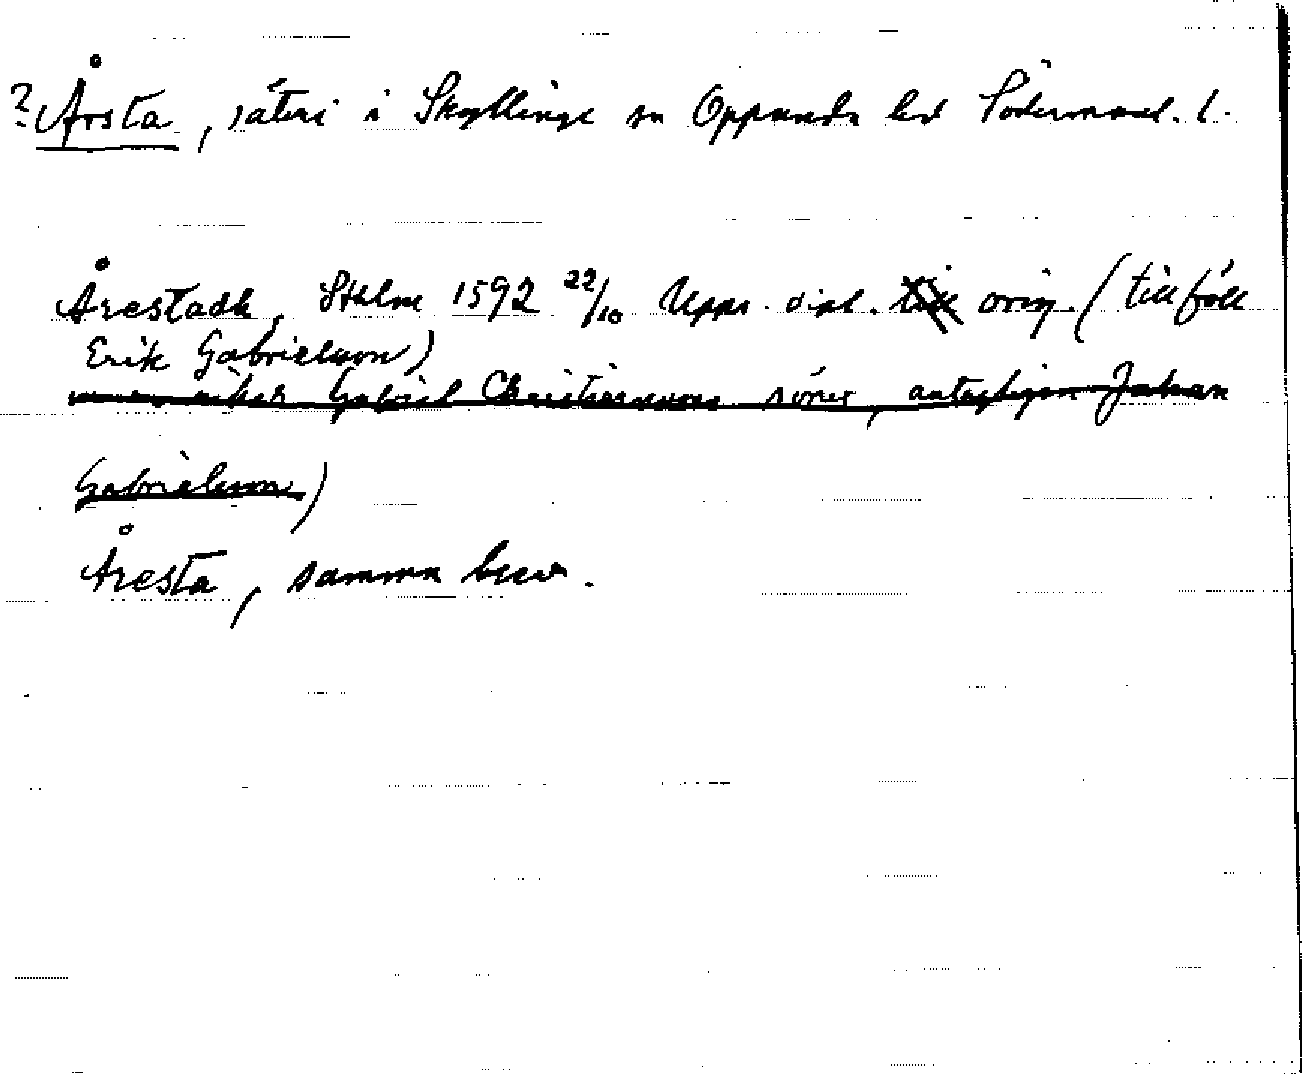 ? Årsta, säteri i Skyllinge sn Oppunda hd Södermanl. l.
Årestadh, Sthlm 1592 22/10 Upps. dipl. till orig. (tillföll
Erik Gabrielsson)
Gabriel Christierssons söner, antagligen Johan
Gabrielsson)
Åresta, samma brev.